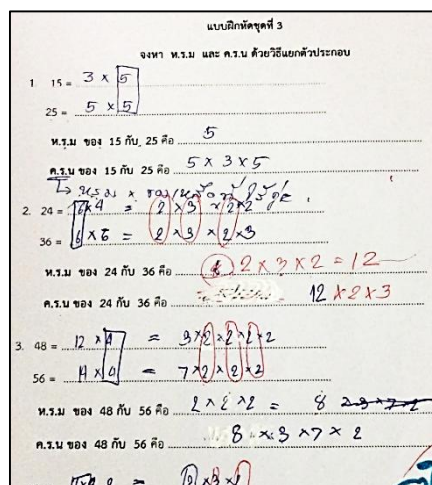 แบบฝึกหัดชุดที่ 3
จงหา ห.ร.ม และ ค.ร.น ด้วยวิธีแยกตัวประกอบ
1. 15 = 3 x 5
25 = 5 x 5
ห.ร.ม ของ 15 กับ 25 คือ 5
ค.ร.น ของ 15 กับ 25 คือ 5 x 3 x 5
2. 24 = 6x4 = 2 x 3 x 2 x 2
36 = 6 x 6 = 2 x 3 x 2 x 3
ห.ร.ม ของ 24 กับ 36 คือ 2 x 3 x 2 = 12
ค.ร.น ของ 24 กับ 36 คือ 12 x 2 x 3
3. 48 = 12 x 4 = 3 x 2 x 2 x 2 x 2
56 = 14 x 4 = 7 x 2 x 2 x 2
ห.ร.ม ของ 48 กับ 56 คือ 2 x 2 x 2 = 8
ค.ร.น ของ 48 กับ 56 คือ 8 x 3 x 7 x 2